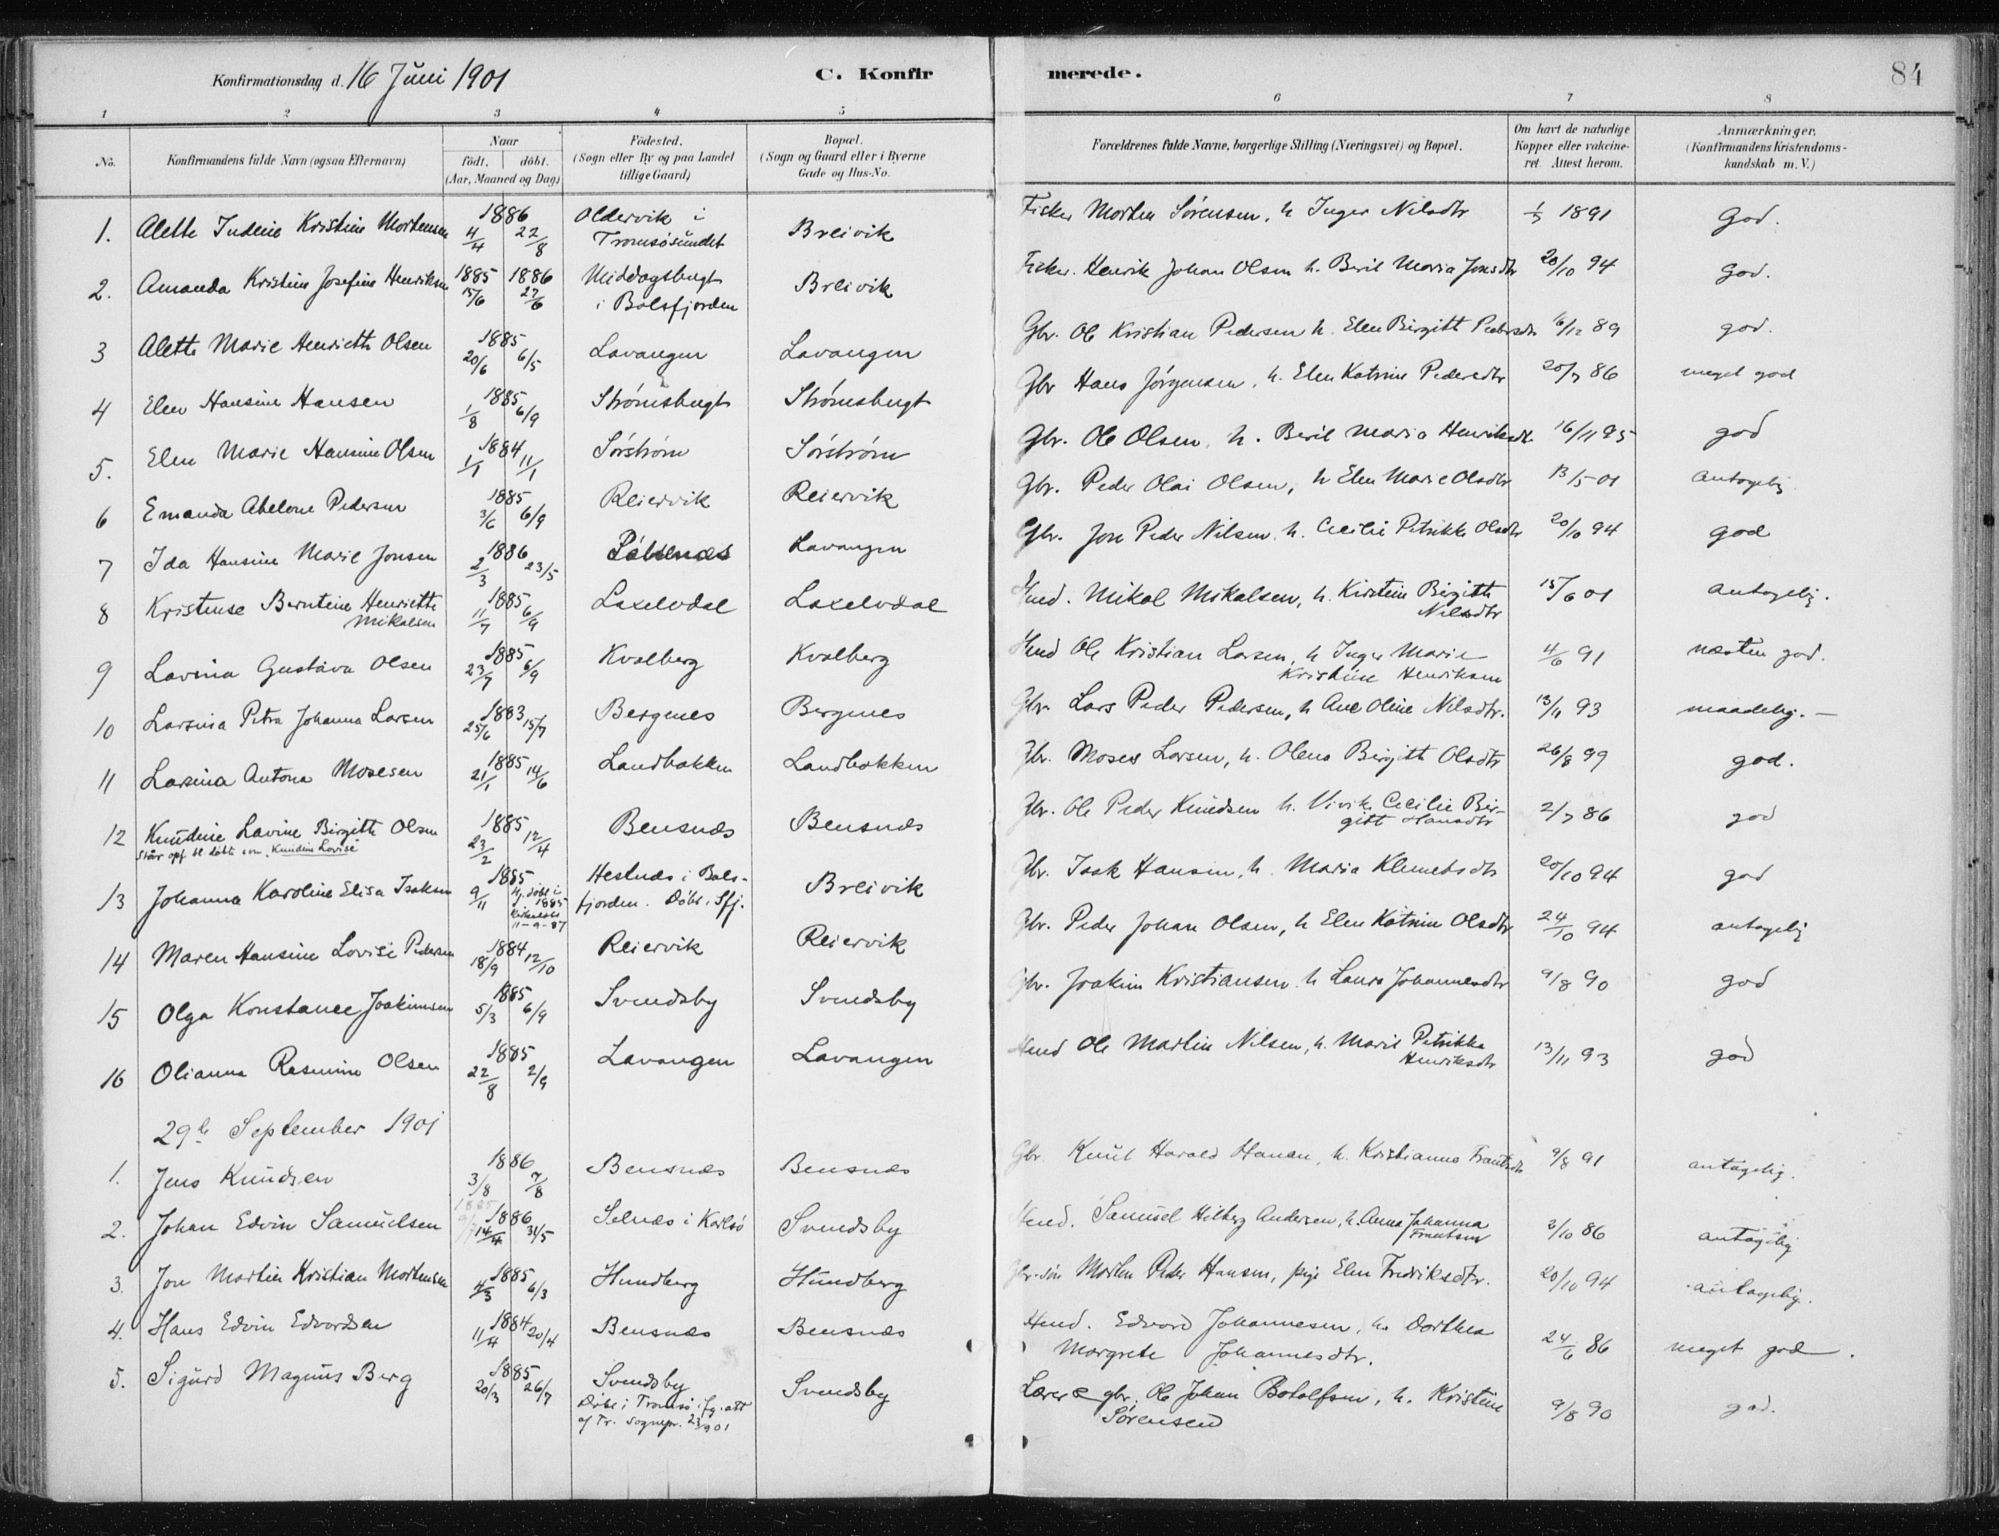 Konfirmationsdag d. 16 Juni 1901 C. Konfirmerede. 84
1 2 3 4 5 6 7 8
No. Konfirmandens fulde Navn (ogsaa Efternavn) Naar født. døbt. (Aar, Maaned og Dag) Fødested. (Sogn eller By og paa Landet tillige Gaard) Bopæl. (Sogn og Gaard eller i Byerne Gade og Hus-No. Forældrenes fulde Navne, borgerlige Stilling (Næringsvei) og Bopæl. Om havt de naturlige Kopper eller vakcineret. Attest herom. Anmærkninger. (Konfirmandens Kristendomskundskab m. V.)
1. Alette Indine Kristine Mortensen 1886 4/4 22/8 Oldervik i Tromsøsundet Breivik Fisker Morten Sørensen, h Inger Nilsdtr 1891 God.
2. Amanda Kristine Josefine Henriksen 1885 15/6 1886 27/6 Middagsbugt i Balsfjorden Breivik Fisker. Henrik Johan Olsen h. Beril Maria Jonsdtr 20/10 94 god.
3 Alette Marie Henriette Olsen 1885 20/6 6/5 Lavangen Lavangen Gbr. Ole Kristian Pedersen h. Elen Birgitt Pedersdtr 16/12 89 god.
4 Elen Hansine Hansen 1885 1/8 6/9 Strømsbugt Strømsbugt Gbr Hans Jørgensen, h. Elen Katrine Pedersdtr 20/7 86 meget god
5. Elen Marie Hansine Olsen 1884 1/1 11/1 Sørstrøm Sørstrøm Gbr. Ole Olsen, h. Beril Maria Henriksdtr 16/11 95 god
6 Emanda Abelone Pedersen 1885 3/6 6/9 Reiervik Reiervik Gbr. Peder Olai Olsen, h Elen Marie Olsdtr 13/5 01 antagelig
7 Ida Hansine Marie Jonsen 1886 2/3 23/5 Lavangen Gbr. Jon Peder Nilsen, h. Cecilie Petrikke Olsdtr 20/10 94 god
8 Kristense Berntine Henriette Mikalsen 1885 11/7 6/9 Lakselvdal Lakselvdal Ind. Mikal Mikalsen, h. Kirstine Birgitte Nilsdtr 15/6 01 antagelig.
9 Lavina Gustava Olsen 1885 23/7 6/9 Kvalberg Kvalberg Ind Ole Kristian Larsen, h Inger Marie Kristine Henriksen 4/6 91 næsten god.
10 Larsina Petra Johanna Larsen 1883 25/6 15/7 Bergenes Bergenes Gbr. Lars Peder Pedersen, h Ane Oline Nilsdtr. 13/11 93 maadelig. –
11 Larsina Antona Mosesen 1885 21/1 14/6 Landbakken Landbakken Gbr. Moses Larsen, h. Olena Birgitt Olsdtr 26/8 99 god.
12 Knudine Lavine Birgitte Olsen 1885 23/2 12/4 Bensnæs Bensnæs Gbr. Ole Peder Knudsen h. Vivik Cecilie Birgitt Hansdtr 2/7 86 god
Står opf. bl. døbte som Knudine Lovise
13 Johanna Karoline Elisa Isaksen 1885 9/11 Hj. døbt i 1885 11-9-87 Hestnæs i Balsfjorden. Døbt i Sfj. Breivik Gbr. Isak Hansen, h. Maria Klemetsdtr 20/10 94 god
14 Maren Hansine Lovise Pedersen 1884 18/9 12/10 Reiervik Reiervik Gbr. Peder Johan Olsen, h Elen Katrine Olsdtr 24/10 94 antagelig
15 Olga Konstance Joakimsen 1885 5/3 6/9 Svendsby Svendsby Gbr. Joakim Kristiansen h Laura Johannesdtr 9/8 90 god
16 Olianna Rasmine Olsen 1885 22/8 2/9 Lavangen Lavangen Ind Ole Martin Nilsen, h. Marie Petrikke Henriksdtr 13/11 93 god
29de September 1901
1. Jens Knudsen 1886 3/8 7/8 Bensnæs Bensnæs Gbr. Knut Harald Hansen, h. Kristianna Frantsdtr 9/8 91 antagelig.
2. Johan Edvin Samuelsen 1886 14/4 31/5 Selnæs i Karlsø Svendsby Ind. Samuel Hilberg Andersen, h. Anna Johanna Frantsen 3/10 86 antagelig
3. Jon Martin Kristian Mortensen 1885 4/3 6/3 Hundberg Hundberg Gbr.søn Morten Peder Hansen, pige Elen Fredriksdtr. 20/10 94 antagelig.
4. Hans Edvin Edvardsen 1884 11/4 20/4 Bensnæs Bensnæs Ind. Edvard Johannesen, h. Dorthea Margrete Johannesdtr. 24/6 86 meget god.
5. Sigurd Magnus Berg 1885 20/3 26/7 Svendsby Svendsby Lærer & gbr. Ole Johan Botolfsen, h. Kristine Sørensen 9/8 90 god.
Døbt i Tromsø ifg. att af Tr. sognepr. 23/9 01